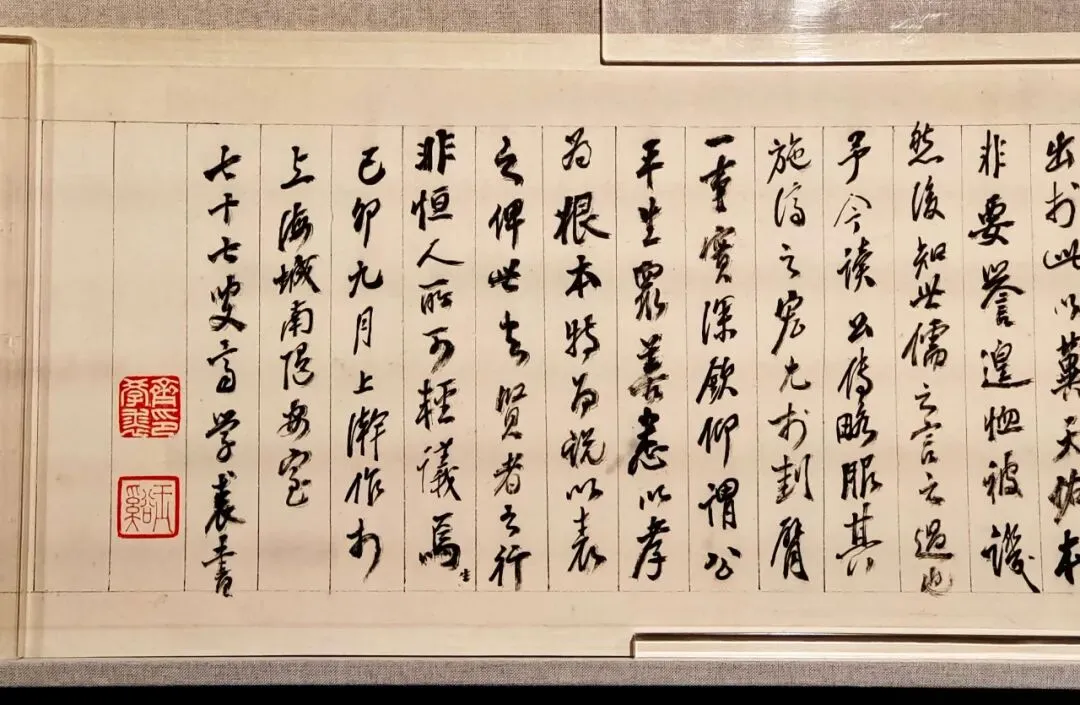 出於此以冀天佑本
非要譽遑恤被譏
然後知世儒之言之過也
予今读公傳略服其
施濟之宏尤於刲臂
一事實深欽仰謂公
平生眾善悉以孝
為根本特為説以表
之俾世賢者之行
非恒人所可輕議焉
己卯九月上澣作於
上海城南隱室
七十七叟齊学裘書
齊學裘印
玉谿